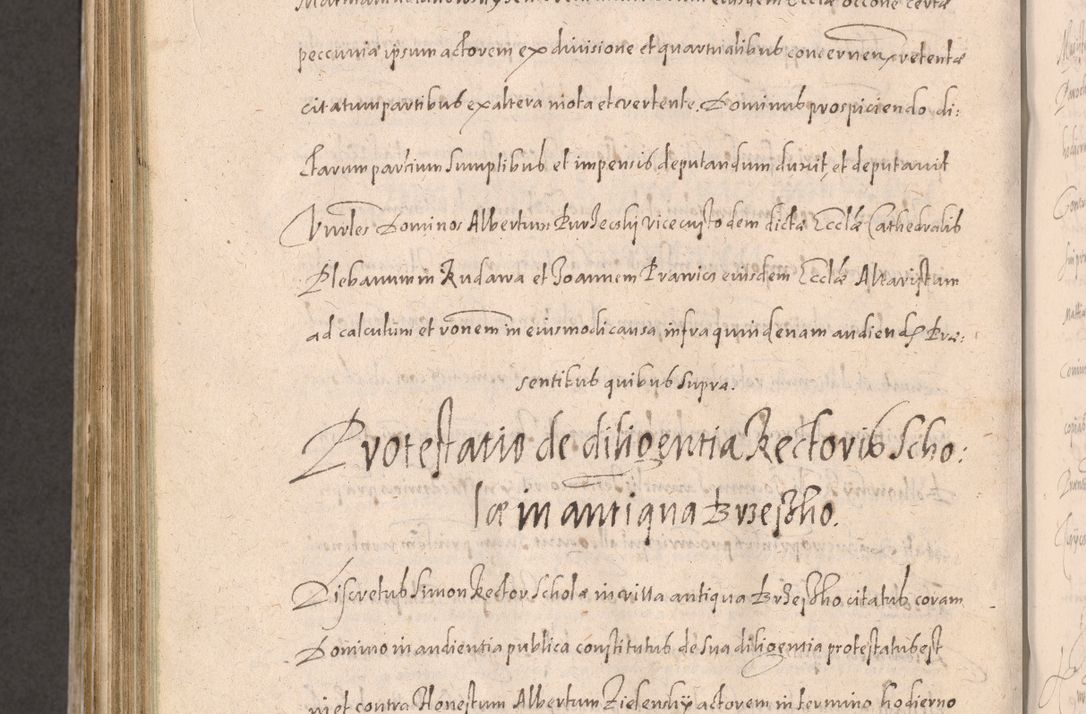 peccuniæ ipsum actorem ex divisione et quartualibus concernen, retentæ
citatum partibus ex altera mota et vertente. Dominus prospiciendo di:
ctarum partium sumptibus et impensis deputandum duxit, et deputavit
Vnrles Dominos Albertum Kurzecskj vicecustodem dictæ Eccłæ Cathedralis
Plebanum in Rudawa et Joannem Prawica eiusdem Eccłæ Altaristam
ad calculum et ronem in eiusmodi causa, infra quindenam audiend, Præ:
sentibus quibus supra.
Protestatio de diligentia Rectoris Scho:
læ in antiqua Brzesko.
Discretus Simon Rector Scholæ in villa antiqua Brzesko citatus, coram
Domino in audientia publica constitutus de sua diligentia protestatus est
ni et contra Honestum Albertum Zielenskj actorem in termino hodierno